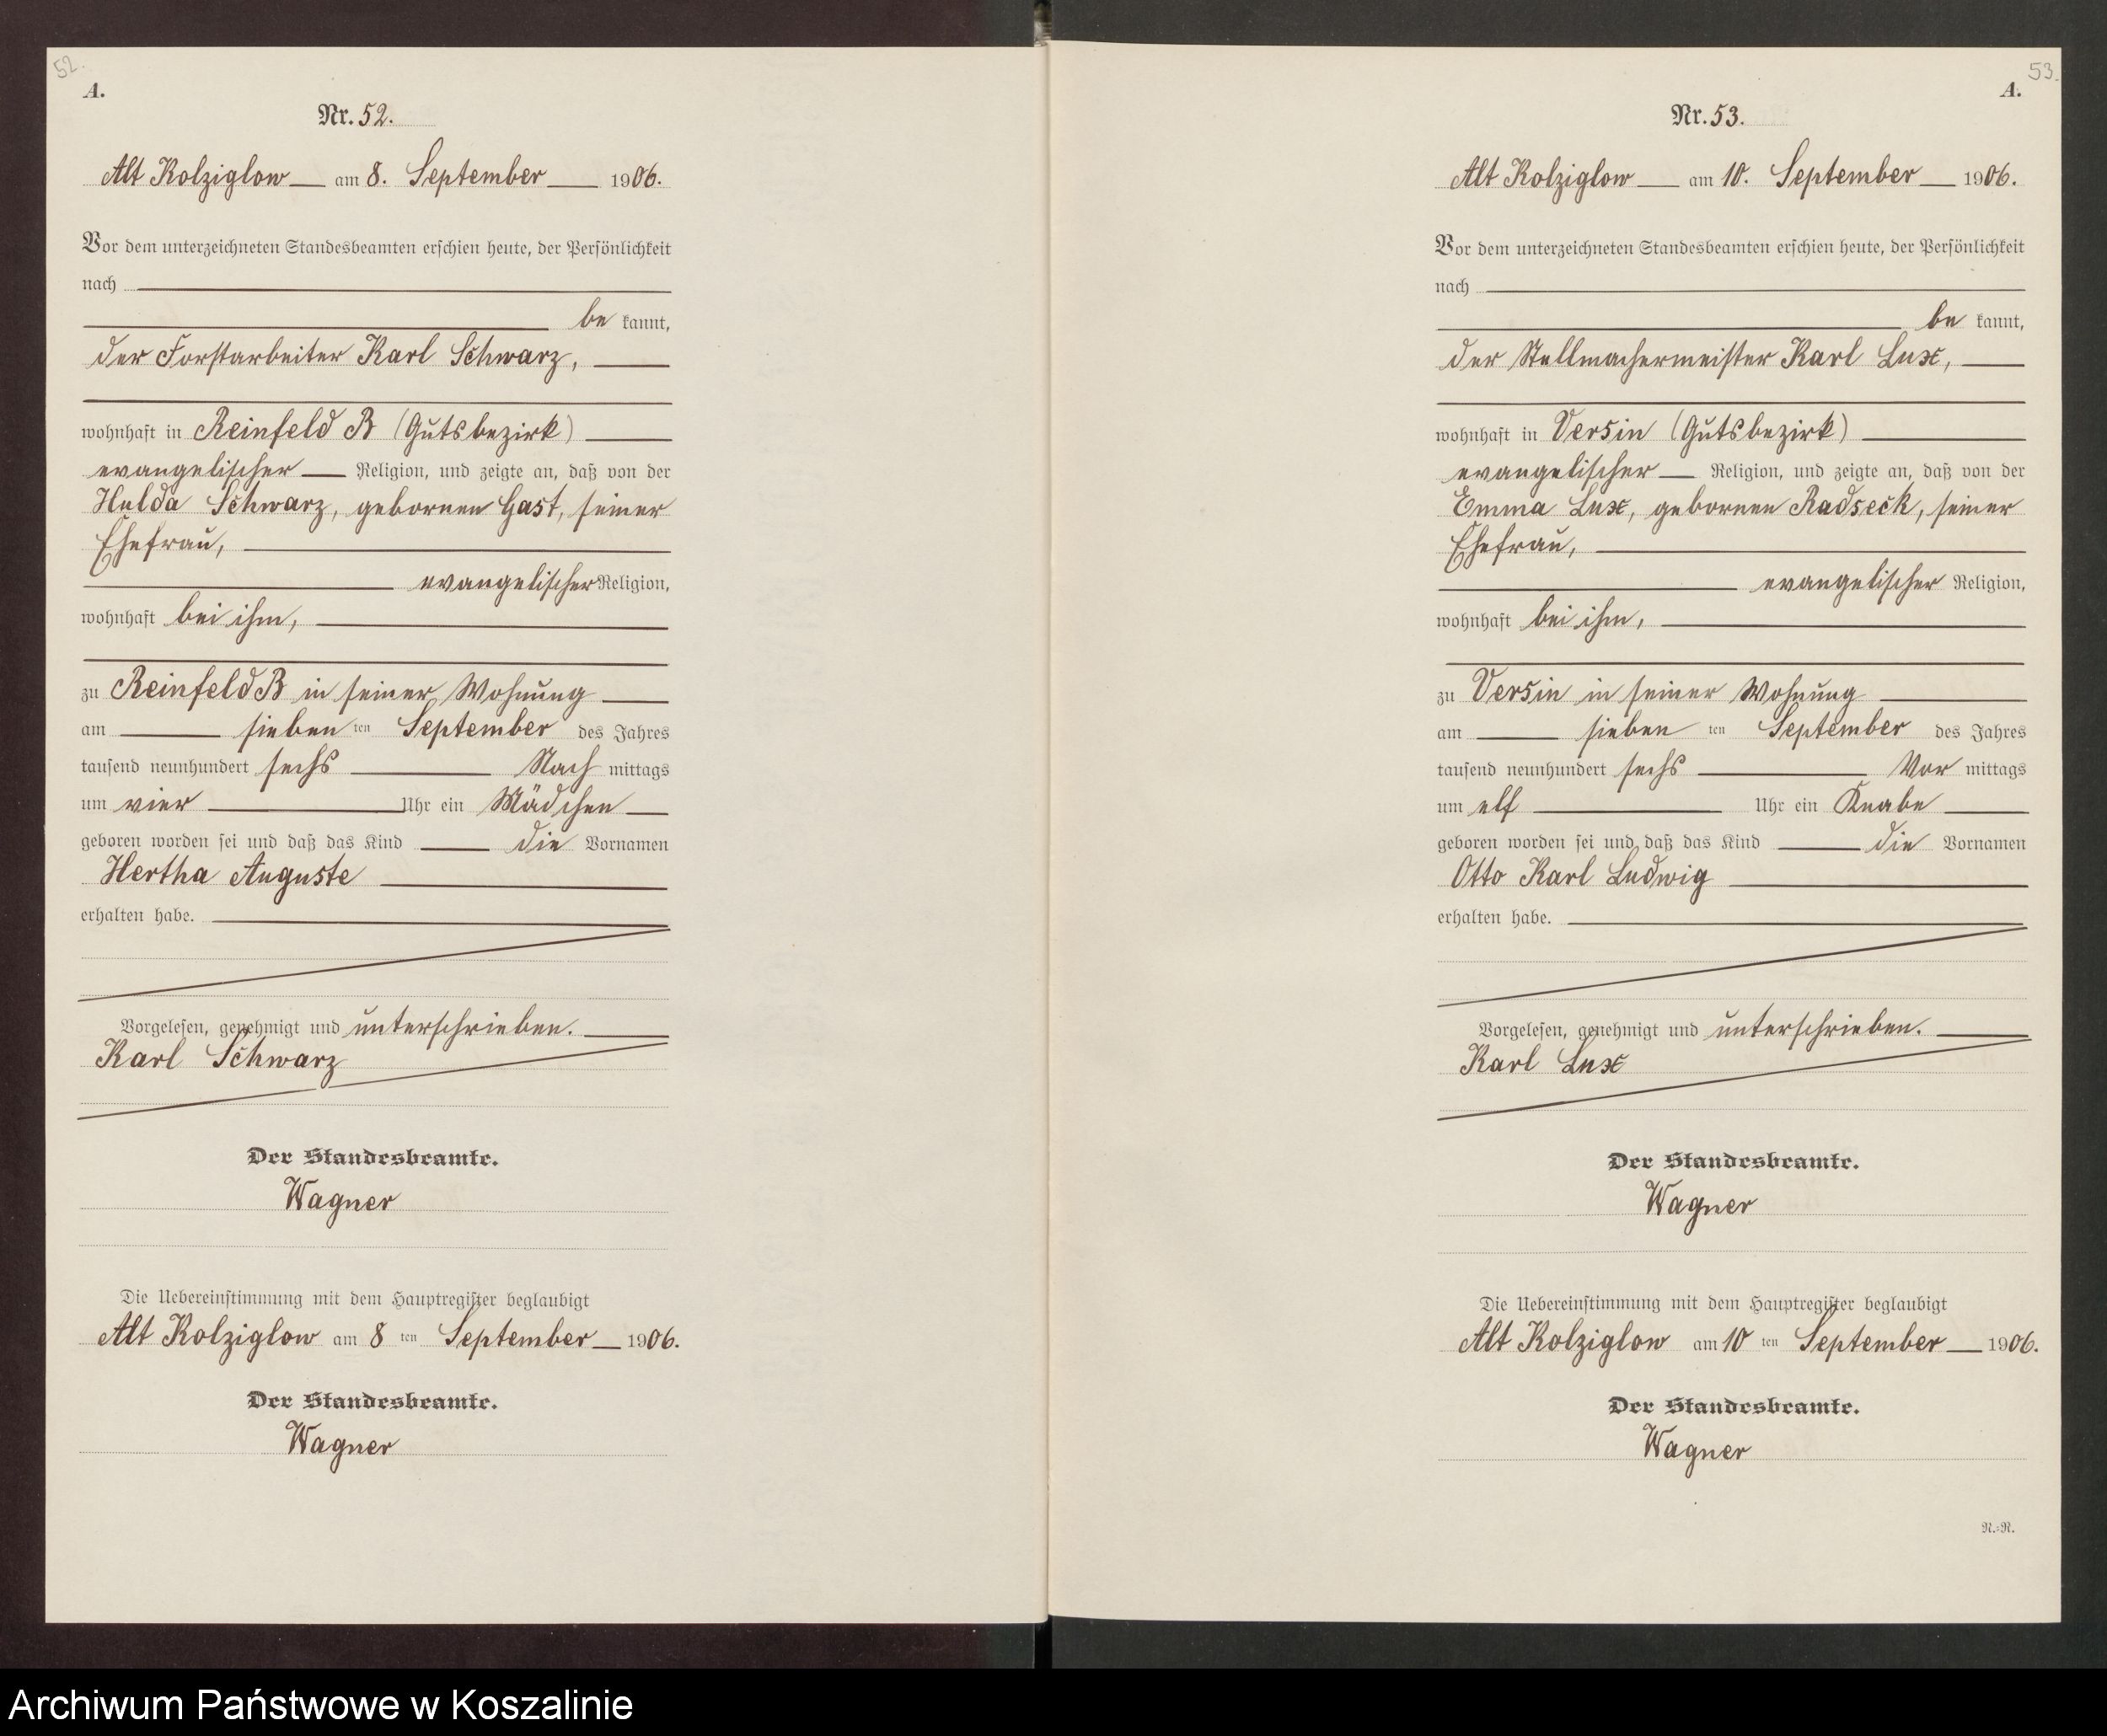 52.
A.
Nr. 52.
Alt Kolziglow am 8. September 1906.
Vor dem unterzeichneten Standesbeamten erschien heute, der Persönlichkeit
nach
be kannt,
der Forstarbeiter Karl Schwarz,
wohnhaft in Reinfeld B (Gutsbezirk)
evangelischer Religion, und zeigte an, daß von der
Hulda Schwarz, gebornen Gast, seiner
Ehefrau,
evangelischer Religion,
wohnhaft bei ihm,
zu Reinfeld B in seiner Wohnung
am sieben ten September des Jahres
tausend neunhundert sechs Nach mittags
um vier Uhr ein Mädchen
geboren worden sei und daß das Kind die Vornamen
Hertha Auguste
erhalten habe.
Vorgelesen, genehmigt und unterschrieben.
Karl Schwarz
Der Standesbeamte.
Wagner
Die Uebereinstimmung mit dem Hauptregister beglaubigt
Alt Kolziglow am 8 ten September 1906.
Der Standesbeamte.
Wagner
53.
A.
Nr. 53.
Alt Kolziglow am 10. September 1906.
Vor dem unterzeichneten Standesbeamten erschien heute, der Persönlichkeit
nach
be kannt,
der Stellmachermeister Karl Lux,
wohnhaft in Versin (Gutsbezirk)
evangelischer Religion, und zeigte an, daß von der
Emma Lux, gebornen Radseck, seiner
Ehefrau,
evangelischer Religion,
wohnhaft bei ihm,
zu Versin in seiner Wohnung
am sieben ten September des Jahres
tausend neunhundert sechs Vor mittags
um elf Uhr ein Knabe
geboren worden sei und daß das Kind die Vornamen
Otto Karl Ludwig
erhalten habe.
Vorgelesen, genehmigt und unterschrieben.
Karl Lux
Der Standesbeamte.
Wagner
Die Uebereinstimmung mit dem Hauptregister beglaubigt
Alt Kolziglow am 10 ten September 1906.
Der Standesbeamte.
Wagner
N.=N.
Archiwum Państwowe w Koszalinie